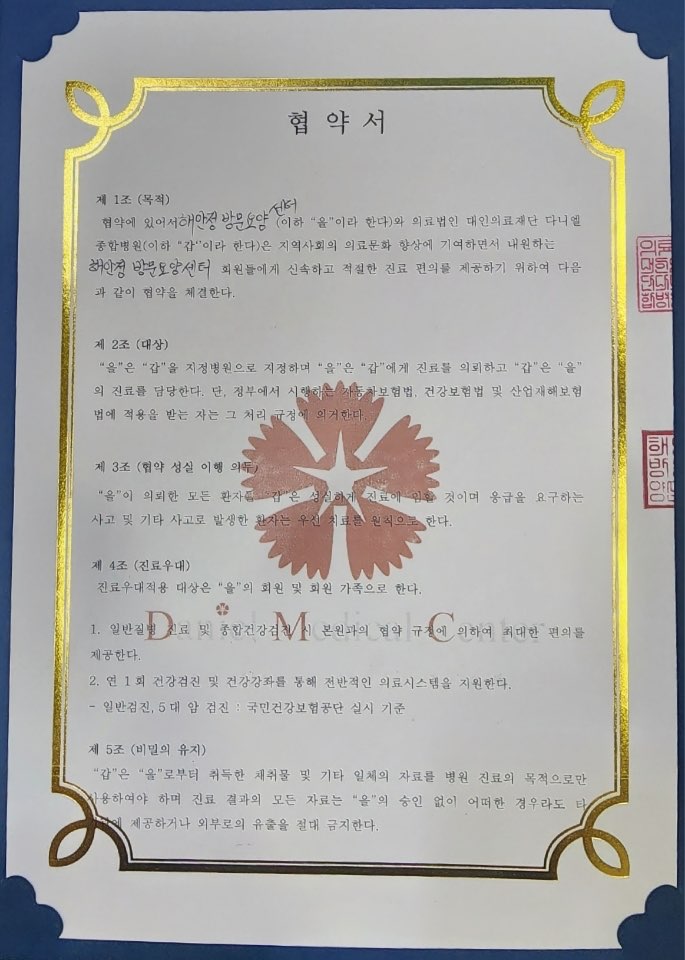 협 약 서
제 1조 (목적)
협약에 있어서 해안정 방문요양 센터 (이하 “을”이라 한다)와 의료법인 대인의료재단 다니엘
종합병원(이하 “갑”이라 한다)은 지역사회의 의료문화 향상에 기여하면서 내원하는
해안정 방문요양센터 회원들에게 신속하고 적절한 진료 편의를 제공하기 위하여 다음
과 같이 협약을 체결한다.
제 2조 (대상)
“을”은 “갑”을 지정병원으로 지정하며 “을”은 “갑”에게 진료를 의뢰하고 “갑”은 “을”
의 진료를 담당한다. 단, 정부에서 시행하는 자동차보험법, 건강보험법 및 산업재해보험
법에 적용을 받는 자는 그 처리 규정에 의거한다.
제 3조 (협약 성실 이행 의무)
“을”이 의뢰한 모든 환자를 “갑”은 성실하게 진료에 임할 것이며 응급을 요구하는
사고 및 기타 사고로 발생한 환자는 우선 치료를 원칙으로 한다.
제 4조 (진료우대)
진료우대적용 대상은 “을”의 회원 및 회원 가족으로 한다.
Daniel Medical Center
1. 일반질병 진료 및 종합건강검진 시 본원과의 협약 규정에 의하여 최대한 편의를
제공한다.
2. 연 1회 건강검진 및 건강강좌를 통해 전반적인 의료시스템을 지원한다.
- 일반검진, 5대 암 검진 : 국민건강보험공단 실시 기준
제 5조 (비밀의 유지)
“갑”은 “을”로부터 취득한 채취물 및 기타 일체의 자료를 병원 진료의 목적으로만
사용하여야 하며 진료 결과의 모든 자료는 “을”의 승인 없이 어떠한 경우라도 타
에 제공하거나 외부로의 유출을 절대 금지한다.